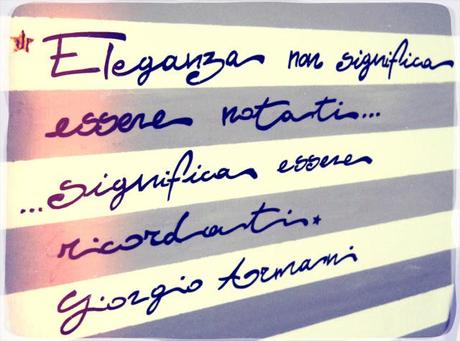 Eleganza non significa
essere notati...
...significa essere
ricordati.
Giorgio Armani